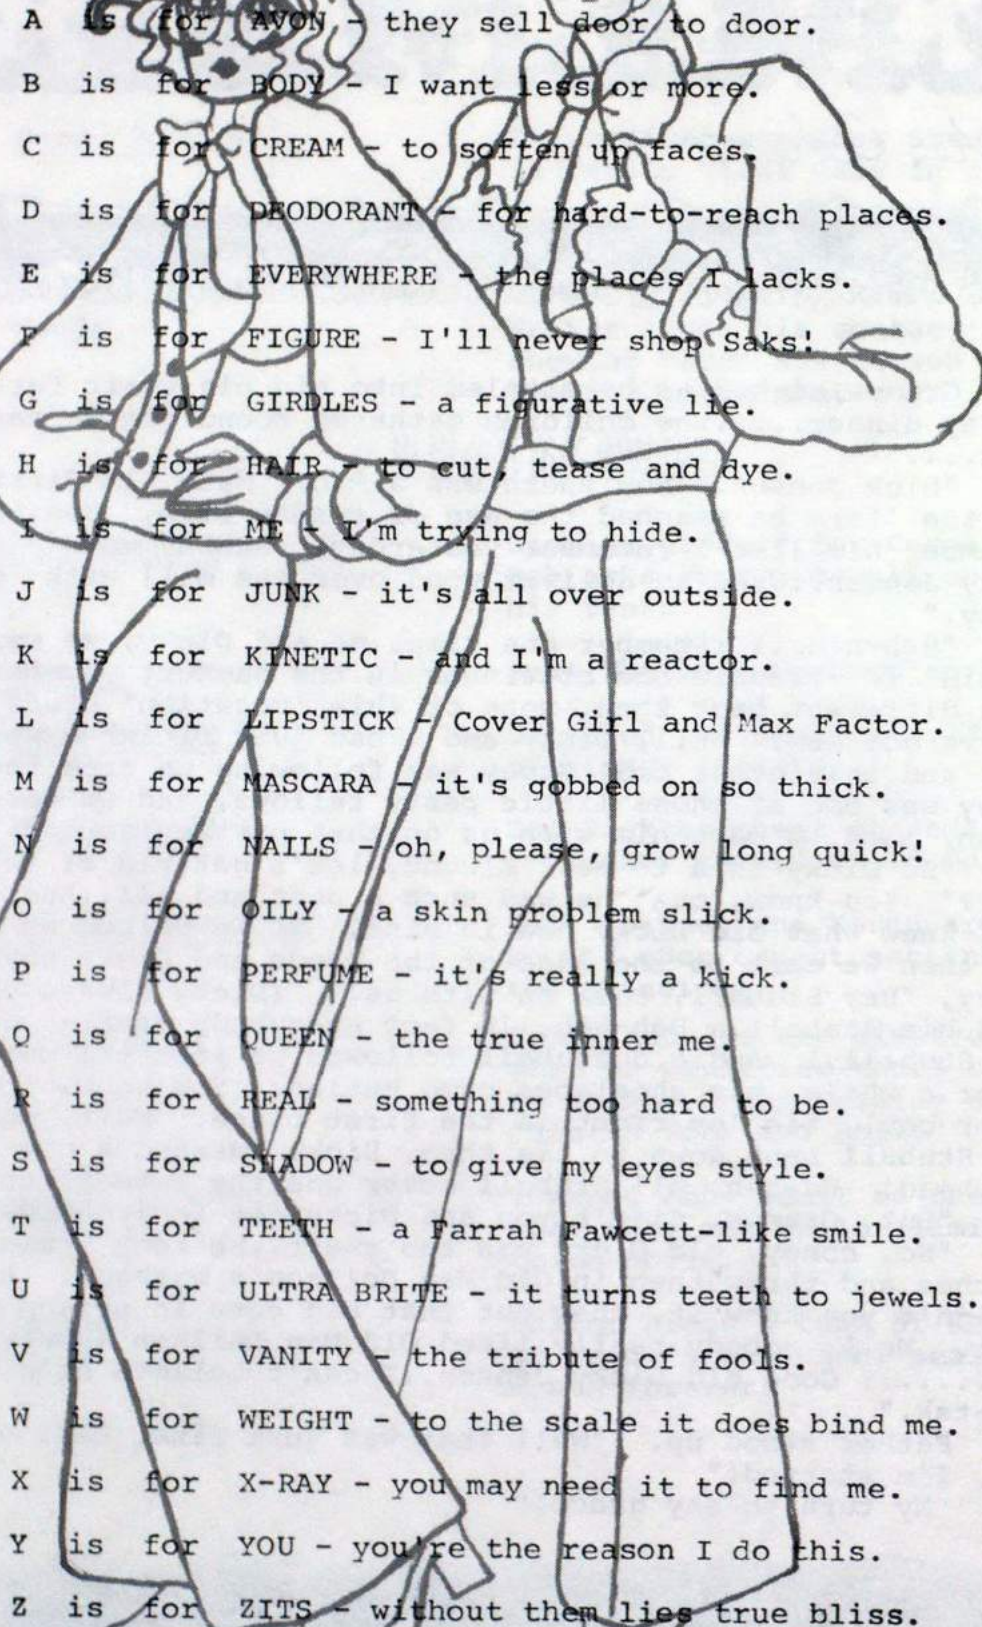 A is for AVON - they sell door to door.
B is for BODY - I want less or more.
C is for CREAM - to soften up faces.
D is for DEODORANT - for hard-to-reach places.
E is for EVERYWHERE - the places I lacks.
F is for FIGURE - I'll never shop Saks!
G is for GIRDLES - a figurative lie.
H is for HAIR - to cut, tease and dye.
I is for ME - I'm trying to hide.
J is for JUNK - it's all over outside.
K is for KINETIC - and I'm a reactor.
L is for LIPSTICK - Cover Girl and Max Factor.
M is for MASCARA - it's gobbed on so thick.
N is for NAILS - oh, please, grow long quick!
O is for OILY - a skin problem slick.
P is for PERFUME - it's really a kick.
Q is for QUEEN - the true inner me.
R is for REAL - something too hard to be.
S is for SHADOW - to give my eyes style.
T is for TEETH - a Farrah Fawcett-like smile.
U is for ULTRA BRITE - it turns teeth to jewels.
V is for VANITY - the tribute of fools.
W is for WEIGHT - to the scale it does bind me.
X is for X-RAY - you may need it to find me.
Y is for YOU - you're the reason I do this.
Z is for ZITS - without them lies true bliss.